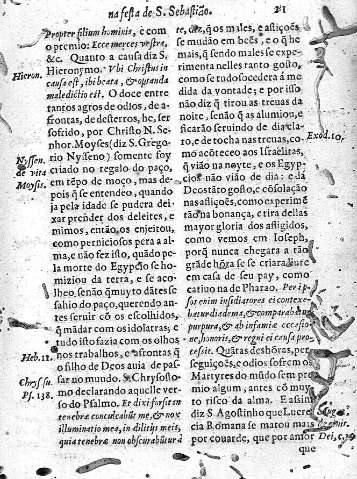 na festa de S. Sebastião.
21
Propter filium hominis, è com
o premio: Ecce merces vestra,
&c. Quanto a causa diz S.
Hieronymo. Vbi Christus in
causa est, ibi beata, & optanda
maledictio est. O doce entre
tantos agros de odios, de a-
frontas, de desterros, he, ser
sofrido, por Christo N. Se-
nhor. Moyses (diz S. Grego-
rio Nysseno) somente foy
criado no regalo do paço,
em tẽpo de moço, mas de-
pois q̃ se entendeo, quando
ja pela idade se pudera dei-
xar prender dos deleites, e
mimos, então os enjeitou,
como perniciosos pera a al-
ma, e não fez isto, quãdo pe-
la morte do Egypcio se ho-
miziou da terra, e se aco-
lheo, senão q̃ muyto dãtes se
sahio do paço, querendo an-
tes servir cõ os escolhidos,
q̃ mãdar com os idolatras, e
tudo isto fazia com os olhos
nos trabalhos, e afrontas q̃
o filho de Deos auia de pas-
sar no mundo. S. Chrysosto-
mo declarando aquelle ver-
so do Psalmo. Et dixi forsitan
tenebræ conculcabũt me, & nox
illuminatio mea, in dilitijs meis,
quia tenebræ non obscurabũtur à
Hieron.
Nyssen.
de vita
Moysis.
Heb. 11.
Chrys. su.
Ps. 138.
te, diz, q̃ os males, e aflições
se mudão em bẽs, e o q̃ he
mais, q̃ sendo males se expe-
rimenta nelles tanto gosto,
como se tudo socedera á me
dida da vontade; e por isso
não diz q̃ tirou as treuas da
noite, senão q̃ as alumiou, e
ficarão seruindo de dia cla-
ro, e de tocha nas treuas, co-
mo acõteceo aos Israelitas,
q̃ vião na noyte, e os Egyp-
cios não vião de dia: e dá
Deos tãto gosto, e cõsolação
nas aflições, como experimẽ
tão na bonança, e tira dellas
mayor gloria dos afligidos,
como vemos em Ioseph,
porq̃ nunca chegara a tão
grãde hõra se se criara liure
em casa de seu pay, como
catiuo na de Pharao. Per ip-
sos enim insidiatores ei contexe-
batur diadema, & comparabatur
purpura, & ab infamiæ occasio-
ne, honoris, & regni ei causa pro-
cessit. Quãtas deshõras, per-
seguições, e odios sofrem os
Martyres do mũdo sem pre
mio algum, antes cõ muy-
to risco da alma. E assim
diz S. Agostinho que Lucre
cia Romana se matou mais
por couarde, que por amor
que
Exod. 10.